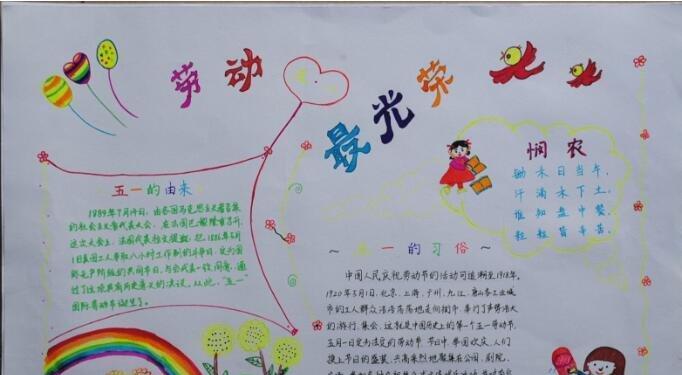 劳动
最光荣
五一的由来
1889年7月14日,由各国马克思主义者召集
的社会主义者代表大会,在法国巴黎隆重召开。
这次大会上,法国代表拉文提议:把1886年5月
1日美国工人争取八小时工作制的斗争日,定为国
际无产阶级的共同节日。与会代表一致同意,通
过了这项具有历史意义的决议。从此,“五一”
国际劳动节诞生了。
悯农
锄禾日当午,
汗滴禾下土。
谁知盘中餐,
粒粒皆辛苦。
~五一的习俗~
中国人民庆祝劳动节的活动可追溯至1918年。
1920年5月1日,北京、上海、广州、九江、唐山各工业城
市的工人群众浩浩荡荡地走向街市、举行了声势浩大
的游行、集会。这就是中国历史上的第一个五一劳动节。
五月一日定为法定的劳动节。节日中,举国欢庆,人们
换上节日的盛装,兴高采烈地聚集在公园、剧院、